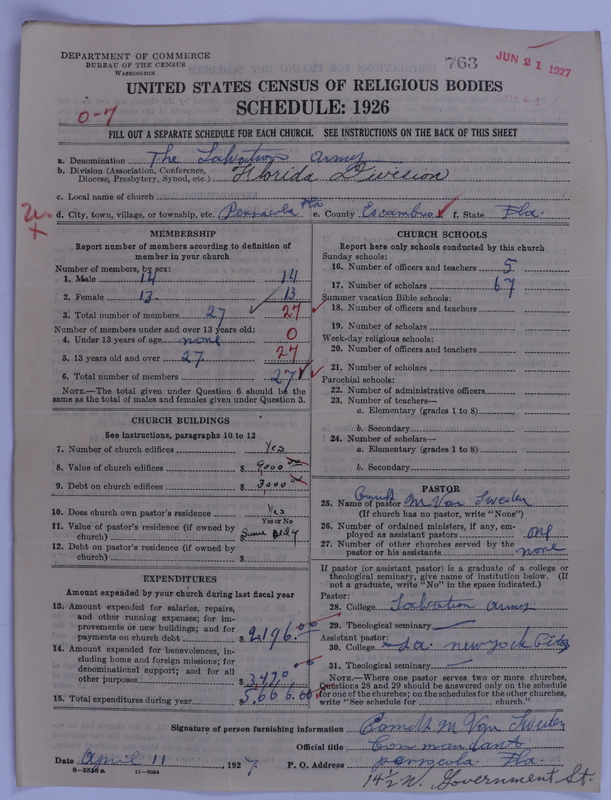 DEPARTMENT OF COMMERCE
BUREAU OF THE CENSUS
WASHINGTON
763
JUN 21 1927
UNITED STATES CENSUS OF RELIGIOUS BODIES
SCHEDULE: 1926
0-7
FILL OUT A SEPARATE SCHEDULE FOR EACH CHURCH. SEE INSTRUCTIONS ON THE BACK OF THIS SHEET
a. Denomination The Salvation Army
b. Division (Association, Conference, Diocese, Presbytery, Synod, etc.) Florida Division
c. Local name of church
d. City, town, village, or township, etc. Pensacola Fla e. County Escambia f. State Fla.
MEMBERSHIP
Report number of members according to definition of
member in your church
Number of members, by sex:
1. Male 14 14
2. Female 13 13
3. Total number of members 27 27
Number of members under and over 13 years old:
4. Under 13 years of age none 0
5. 13 years old and over 27 27
6. Total number of members 27
NOTE.—The total given under Question 6 should be the
same as the total of males and females given under Question 3.
CHURCH BUILDINGS
See instructions, paragraphs 10 to 12
7. Number of church edifices Yes
8. Value of church edifices $ 9000 00
9. Debt on church edifices $ 3000
10. Does church own pastor's residence? Yes
Yes or No
11. Value of pastor's residence (if owned by
church) $ Same Bldg
12. Debt on pastor's residence (if owned by
church) $
EXPENDITURES
Amount expended by your church during last fiscal year
13. Amount expended for salaries, repairs,
and other running expenses; for im-
provements or new buildings; and for
payments on church debt $ 2196.00
14. Amount expended for benevolences, in-
cluding home and foreign missions; for
denominational support; and for all
other purposes $ 3470 00
15. Total expenditures during year $ 5,666.00
CHURCH SCHOOLS
Report here only schools conducted by this church
Sunday schools:
16. Number of officers and teachers 5
17. Number of scholars 67
Summer vacation Bible schools:
18. Number of officers and teachers
19. Number of scholars
Week-day religious schools:
20. Number of officers and teachers
21. Number of scholars
Parochial schools:
22. Number of administrative officers
23. Number of teachers—
a. Elementary (grades 1 to 8)
b. Secondary
24. Number of scholars—
a. Elementary (grades 1 to 8)
b. Secondary
PASTOR
25. Name of pastor Comdt M Van Sweden
(If church has no pastor, write "None")
26. Number of ordained ministers, if any, em-
ployed as assistant pastors one
27. Number of other churches served by the
pastor or his assistants none
If pastor (or assistant pastor) is a graduate of a college or
theological seminary, give name of institution below. (If
not a graduate, write "No" in the space indicated.)
Pastor:
28. College Salvation Army
29. Theological seminary
Assistant pastor:
30. College S.A. New York City
31. Theological seminary
NOTE.—Where one pastor serves two or more churches,
Questions 28 and 29 should be answered only on the schedule
for one of the churches; on the schedules for the other churches,
write "See schedule for church."
Signature of person furnishing information Comdt M Van Sweden
Official title Commandant
Date April 11, 1927. P. O. Address Pensacola Fla.
8-5518 a 11-9084
14½ W. Government St.